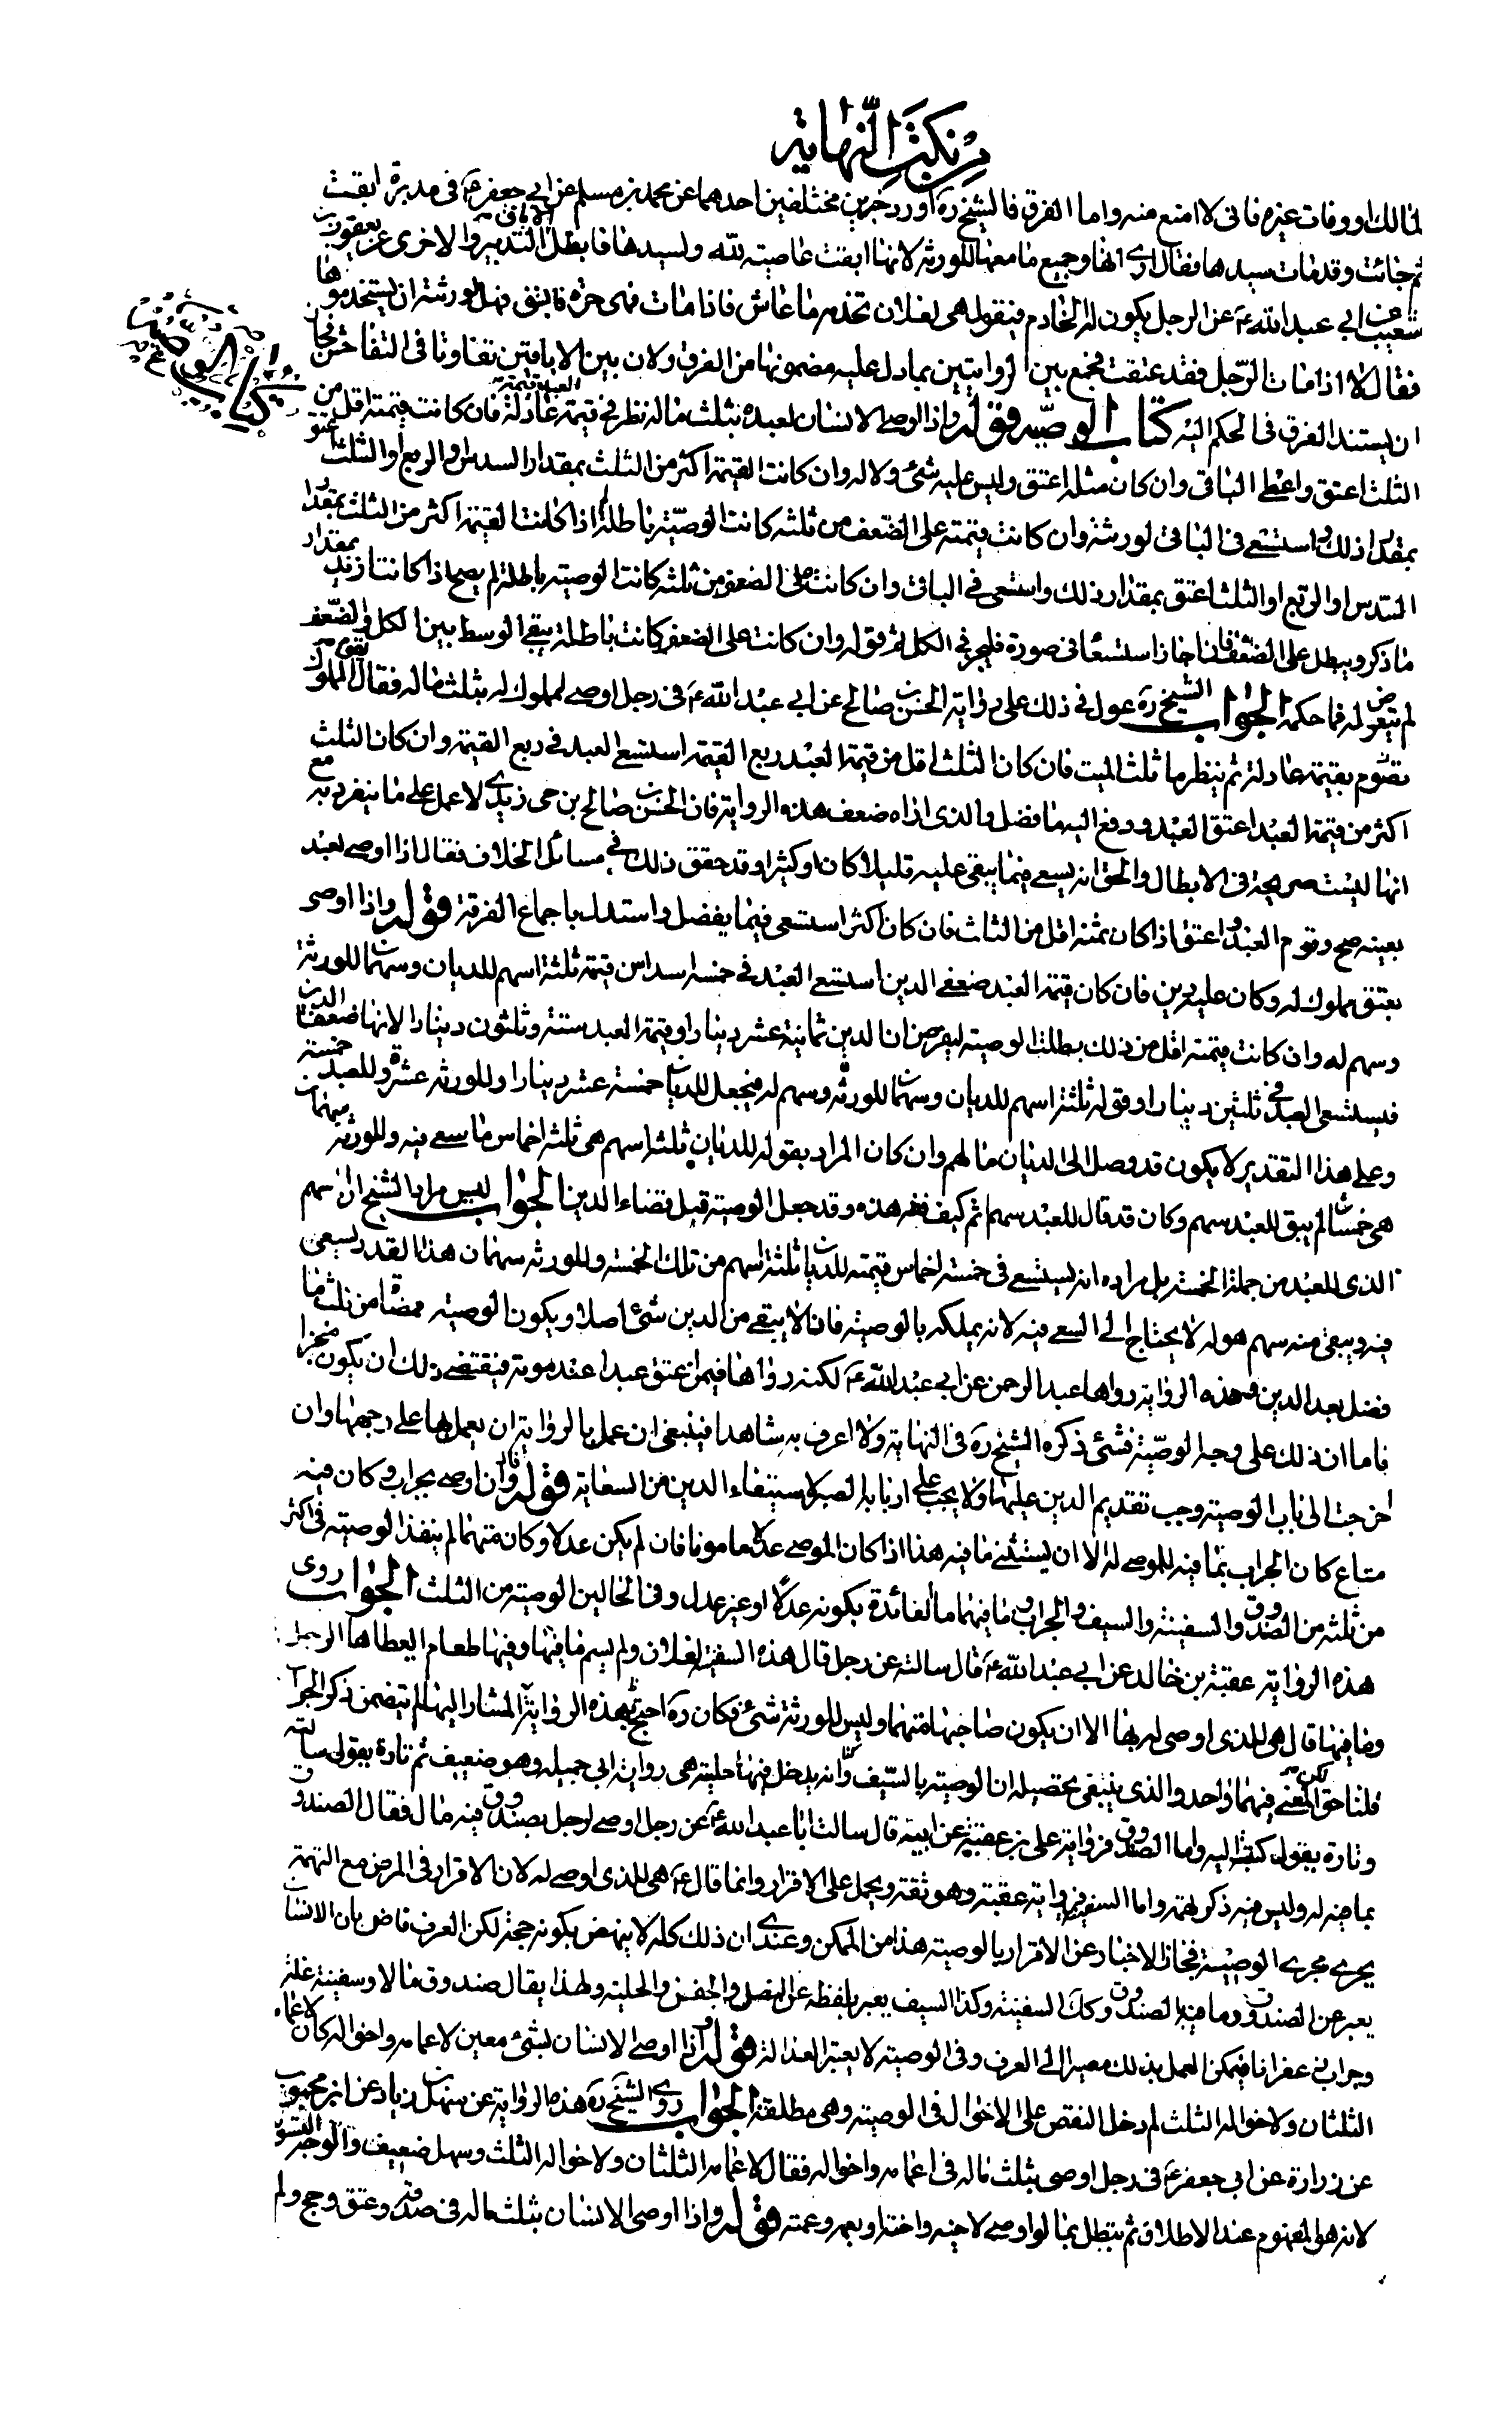 من نكت النهاية
المالك او وفات غيره فانى لا امنع منه واما الفرق فالشيخ ره اورد خبرين مختلفين احدهما عن محمد بن مسلم عن ابي جعفر ع فى مدبرة ابقت
ثم جائت وقد مات سيدها فقال ارى انها وجميع ما معها للورثه لانها ابقت عاصيته لله ولسيدها فابطل الاباق التدبير والاخرى عن يعقوب بن
شعيب عن ابي عبد الله ع عن الرجل يكون له الخادم فيقوله هى لفلان تخدمه ما عاش فاذا مات فهى حرة فابق فهل لورثته ان يستخدموها
فقال لا اذا مات الرجل فقد عتقت فجمع بين الروايتين بما دل عليه مضمونها من الفرق ولان بين الاباقتين تفاوتا فى التفاحش فجاز
ان يستند الفرق فى الحكم اليه كتاب الوصية قوله واذا اوصى الانسان لعبده بثلث ماله نظر فى قيمة العبد قيمة عادلة فان كانت قيمته اقل من
كتاب الوصية
الثلث اعتق واعطى الباقى وان كان مثله اعتق وليس عليه شئ ولا له وان كانت القيمة اكثر من الثلث بمقدار السدس او الربع او الثلث اعتق
بمقدار ذلك واستسعى فى الباقى لورثته وان كانت قيمته على الضعف من ثلثه كانت الوصية باطلة اذا كانت القيمة اكثر من الثلث بمقدار
السدس او الربع او الثلث اعتق بمقدار ذلك واستسعى فى الباقى وان كانت على الضعف من ثلثه كانت الوصية باطلة لم يصح اذا كانت ازيد بمقدار
ما ذكر ويبطل على الضعف فان جاز استسعائى صورة فليجز فى الكل ثم قوله وان كانت على الضعف كانت باطلة يبقى الوسط بين الكل والضعف
لم يتعرض له فما حكمه الجواب الشيخ ره عول فى ذلك على رواية الحسن بن صالح عن ابى عبد الله ع فى رجل اوصى لمملوك له بثلث ماله فقال يقوم المملوك
بقيمة عادلة ثم ينظر ما ثلث الميت فان كان الثلث اقل من قيمة العبد ربع القيمة استسعى العبد فى ربع القيمة وان كان الثلث
اكثر من قيمة العبد اعتق العبد ودفع اليه ما فضل والذى اراه ضعف هذه الرواية فان الحسن بن صالح بن حى زيدى لا عمل على ما ينفرد به مع
انها ليست صريحة فى الابطال والحق انه يسعى فيما يبقى عليه قليلا كان او كثيرا وقد حقق ذلك فى مسائل الخلاف فقال اذا اوصى لعبد
بعينه صح وقوم العبد واعتق اذا كان ثمنه اقل من الثلث فان كان اكثر استسعى فيما يفضل واستدل باجماع الفرقة قوله واذا اوصى
بعتق مملوك له وكان عليه دين فان كان قيمة العبد ضعفى الدين استسعى العبد فى خمسة اسداس قيمته ثلثة اسهم للديان وسهمان للورثة
وسهم له وان كانت قيمته اقل من ذلك بطلت الوصية ليفرض ان الدين ثمانية عشر دينارا وقيمة العبد ستة وثلثون دينارا لانها ضعف الدين
فيستسعى العبد فى ثلثين دينارا وقوله ثلثة اسهم للديان وسهمان للورثه وسهم له فيجعل للديان خمسة عشر دينارا وللورثه عشرة وللعبد خمسة
وعلى هذا التقدير لا يكون قد وصل الى الديان مالهم وان كان المراد بقوله للديان ثلثة اسهم هى ثلثه اخماس ما سعى فيه وللورثه سهمان
هى خمسان لم يبق للعبد سهم وكان قد قال للعبد سهم ثم كيف فقه هذه وقد جعل الوصية قبل قضاء الدين الجواب ليس مراد الشيخ ان السهم
الذى للعبد من جملة الخمسة بل مراده انه يستسعى فى خمسة اخماس قيمته للديان ثلثة اسهم من تلك الخمسة وللورثه سهمان هذا القدر يسعى
فيه ويبقى منه سهم هو له لا يحتاج الى السعى فيه لانه يملكه بالوصية فاذا لا يبقى من الدين شئ اصلا ويكون الوصية ممضاة من ثلث ما
فضل بعد الدين وهذه الرواية رواها عبد الرحمن عن ابى عبد الله ع لكنه رواها فيمن اعتق عبدا عند موته فيقتضى ذلك ان يكون منجزا
فاما ان ذلك على وجه الوصية فشئ ذكره الشيخ ره فى النهاية ولا اعرف به شاهدا فينبغى ان عمل بالرواية ان يعمل بها على وجهها وان
اخرجت الى باب الوصية وجب تقديم الدين عليها ولا يجب على اربابه الصبر لاستيفاء الدين من السعاية قوله وان اوصى بجراب وكان فيه
متاع كان الجراب بما فيه للموصى له الا ان يستثنى ما فيه هذا اذا كان الموصى عدلا مامونا فان لم يكن عدلا وكان متهما لم ينفذ الوصية فى اكثر
من ثلثه من الصندوق والسفينة والسيف والجراب وما فيهما ما الفائدة بكونه عدلا او غير عدل وفى الحالين الوصية من الثلث الجواب روى
هذه الرواية عقبة بن خالد عن ابى عبد الله ع قال سالته عن رجل قال هذه السفينة لفلان ولم يسم ما فيها وفيها طعام ايعطاها الرجل
وما فيها قال هى للذى اوصى له بها الا ان يكون صاحبها متهما وليس للورثة شئ فكان ره احتج بهذه الرواية المشار اليها لم يتضمن ذكر الجراب
قلنا حق لكن المعنى فيهما واحد والذى ينبغى تحصيله ان الوصية بالسيف وانه يدخل فيها حليته هى رواية ابى جميله وهو ضعيف ثم تارة يقول سالته
وتارة يقول كتبت اليه واما الصندوق فرواية على بن عقبة عن ابيه قال سالت ابا عبد الله ع عن رجل اوصى لرجل بصندوق فيه مال فقال الصندوق
بما فيه له وليس فيه ذكر تهمة واما السفينة فرواية عقبة وهو ثقة ويحمل على الاقرار وانما قال ع هى للذى اوصى له لان الاقرار فى المرض مع التهمة
يجرى مجرى الوصية فجاز الاخبار عن الاقرار بالوصية هذا من الممكن وعندى ان ذلك كله لا ينهض بكونه حجة لكن العرف قاض بان الانسان
يعبر عن الصندوق وما فيه بالصندوق وكك السفينة وكذا السيف يعبر بلفظه عن النصل والجفن والحلية ولهذا يقال صندوق مالا وسفينة غلة
وجراب زعفرانا فيمكن العمل بذلك مصيرا الى العرف وفى الوصية لا يعتبر العدالة قوله واذا اوصى الانسان بشئ معين لاعمامه واخواله كان لاعمامه
الثلثان ولاخواله الثلث لم دخل النقص على الاخوال فى الوصية وهى مطلقة الجواب روى الشيخ ره هذه الرواية عن سهل بن زياد عن ابن محبوب
عن زرارة عن ابى جعفر ع فى رجل اوصى بثلث ماله فى اعمامه واخواله فقال لاعمامه الثلثان ولاخواله الثلث وسهل ضعيف والوجه التسوية
لانه هو المفهوم عند الاطلاق ثم يبطل بما لو اوصى لاخيه واخته او بعمه وعمته قوله واذا اوصى الانسان بثلث ماله فى صدقة وعتق وحج ولم